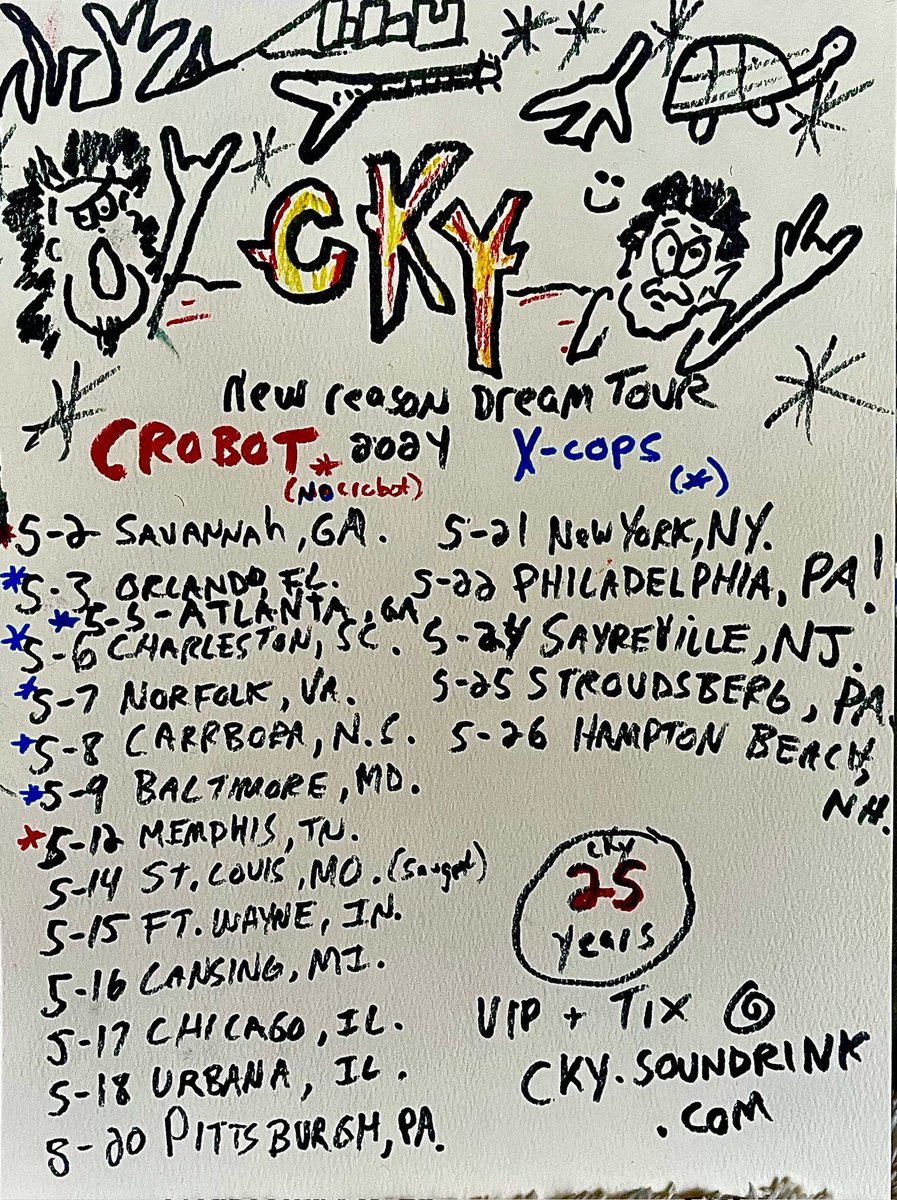 CKY
New reason Dream Tour
CROBOT * 2024
X-cops
(NO crobot)
(*)
*5-2 SAVANNAh, GA.
*5-3 ORLANDO, FL.
*5-5-ATLANTA, GA
*5-6 CHARLESTON, SC.
*5-7 NORFOLK, VA.
*5-8 CARRBORA, N.C.
*5-9 BALTIMORE, MD.
*5-12 MEMPHIS, TN.
5-14 ST. LOUIS, MO. (Sauget)
5-15 FT. WAYNE, IN.
5-16 LANSING, MI.
5-17 CHICAGO, IL.
5-18 URBANA, IL.
5-20 PITTSBURGH, PA.
5-21 New YORK, NY.
5-22 PHILADELPHIA, PA!
5-24 SAYREVILLE, NJ.
5-25 STROUDSBERG, PA.
5-26 HAMPTON BEACH,
NH.
CKY
25
years
VIP + TIX @
CKY.SOUNDRINK
.COM